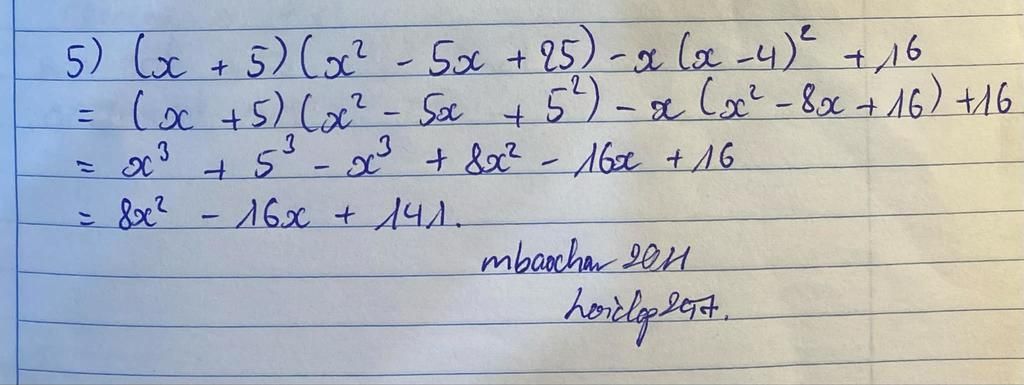 5) (x + 5)(x² - 5x + 25) - x(x - 4)² + 16
= (x + 5)(x² - 5x + 5²) - x(x² - 8x + 16) + 16
= x³ + 5³ - x³ + 8x² - 16x + 16
= 8x² - 16x + 141.
mbaochau 2011